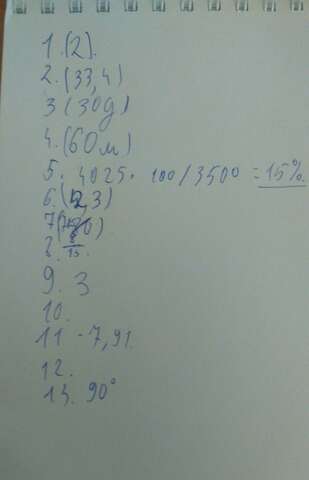 1. (2).
2. (33,4)
3 (30д)
4. (60м)
5. 4025 · 100 / 3500 = 15%.
6. (2,3)
7
8. 8/15.
9. 3
10.
11 -7,91.
12.
13. 90°